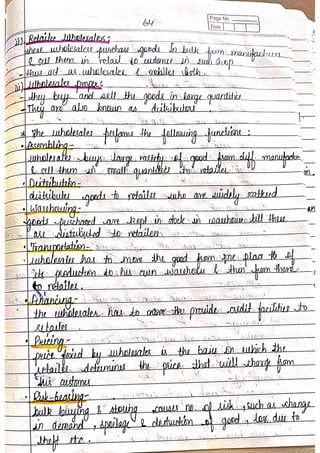 64
Page No.
Date
ii) Retailer wholesalers :
these wholesalers purchase goods in bulk from manufacturer
& sell them in retail to customer in such shop
- thus act as wholesaler & retailer both.
iii) Wholesaler proper :
- they buy and sell the goods in large quantities
- They are also known as distributors.
* The wholesaler performs the following functions :
• Assembling -
wholesaler buys large variety of good from diff manufactur
& sell them in small quantities to retailer
• Distribution -
distribute goods to retailer who are widely
• Warehousing -
goods purchased are kept in stock in warehouse till these
are distributed to retailers
• Transportation -
wholesaler has to move the good from the place of
its production to his own warehouse & then from there
to retailer.
• Financing -
the wholesaler has to provide credit facilities to
retailer
• Pricing -
price fixed by wholesaler is the basis on which the
retailer determines the price that will charge from
his customer
• Risk-bearing -
bulk buying & storing causes no. of risk, such as change
in demand, spoilage & destruction of good, loss due to
theft etc.